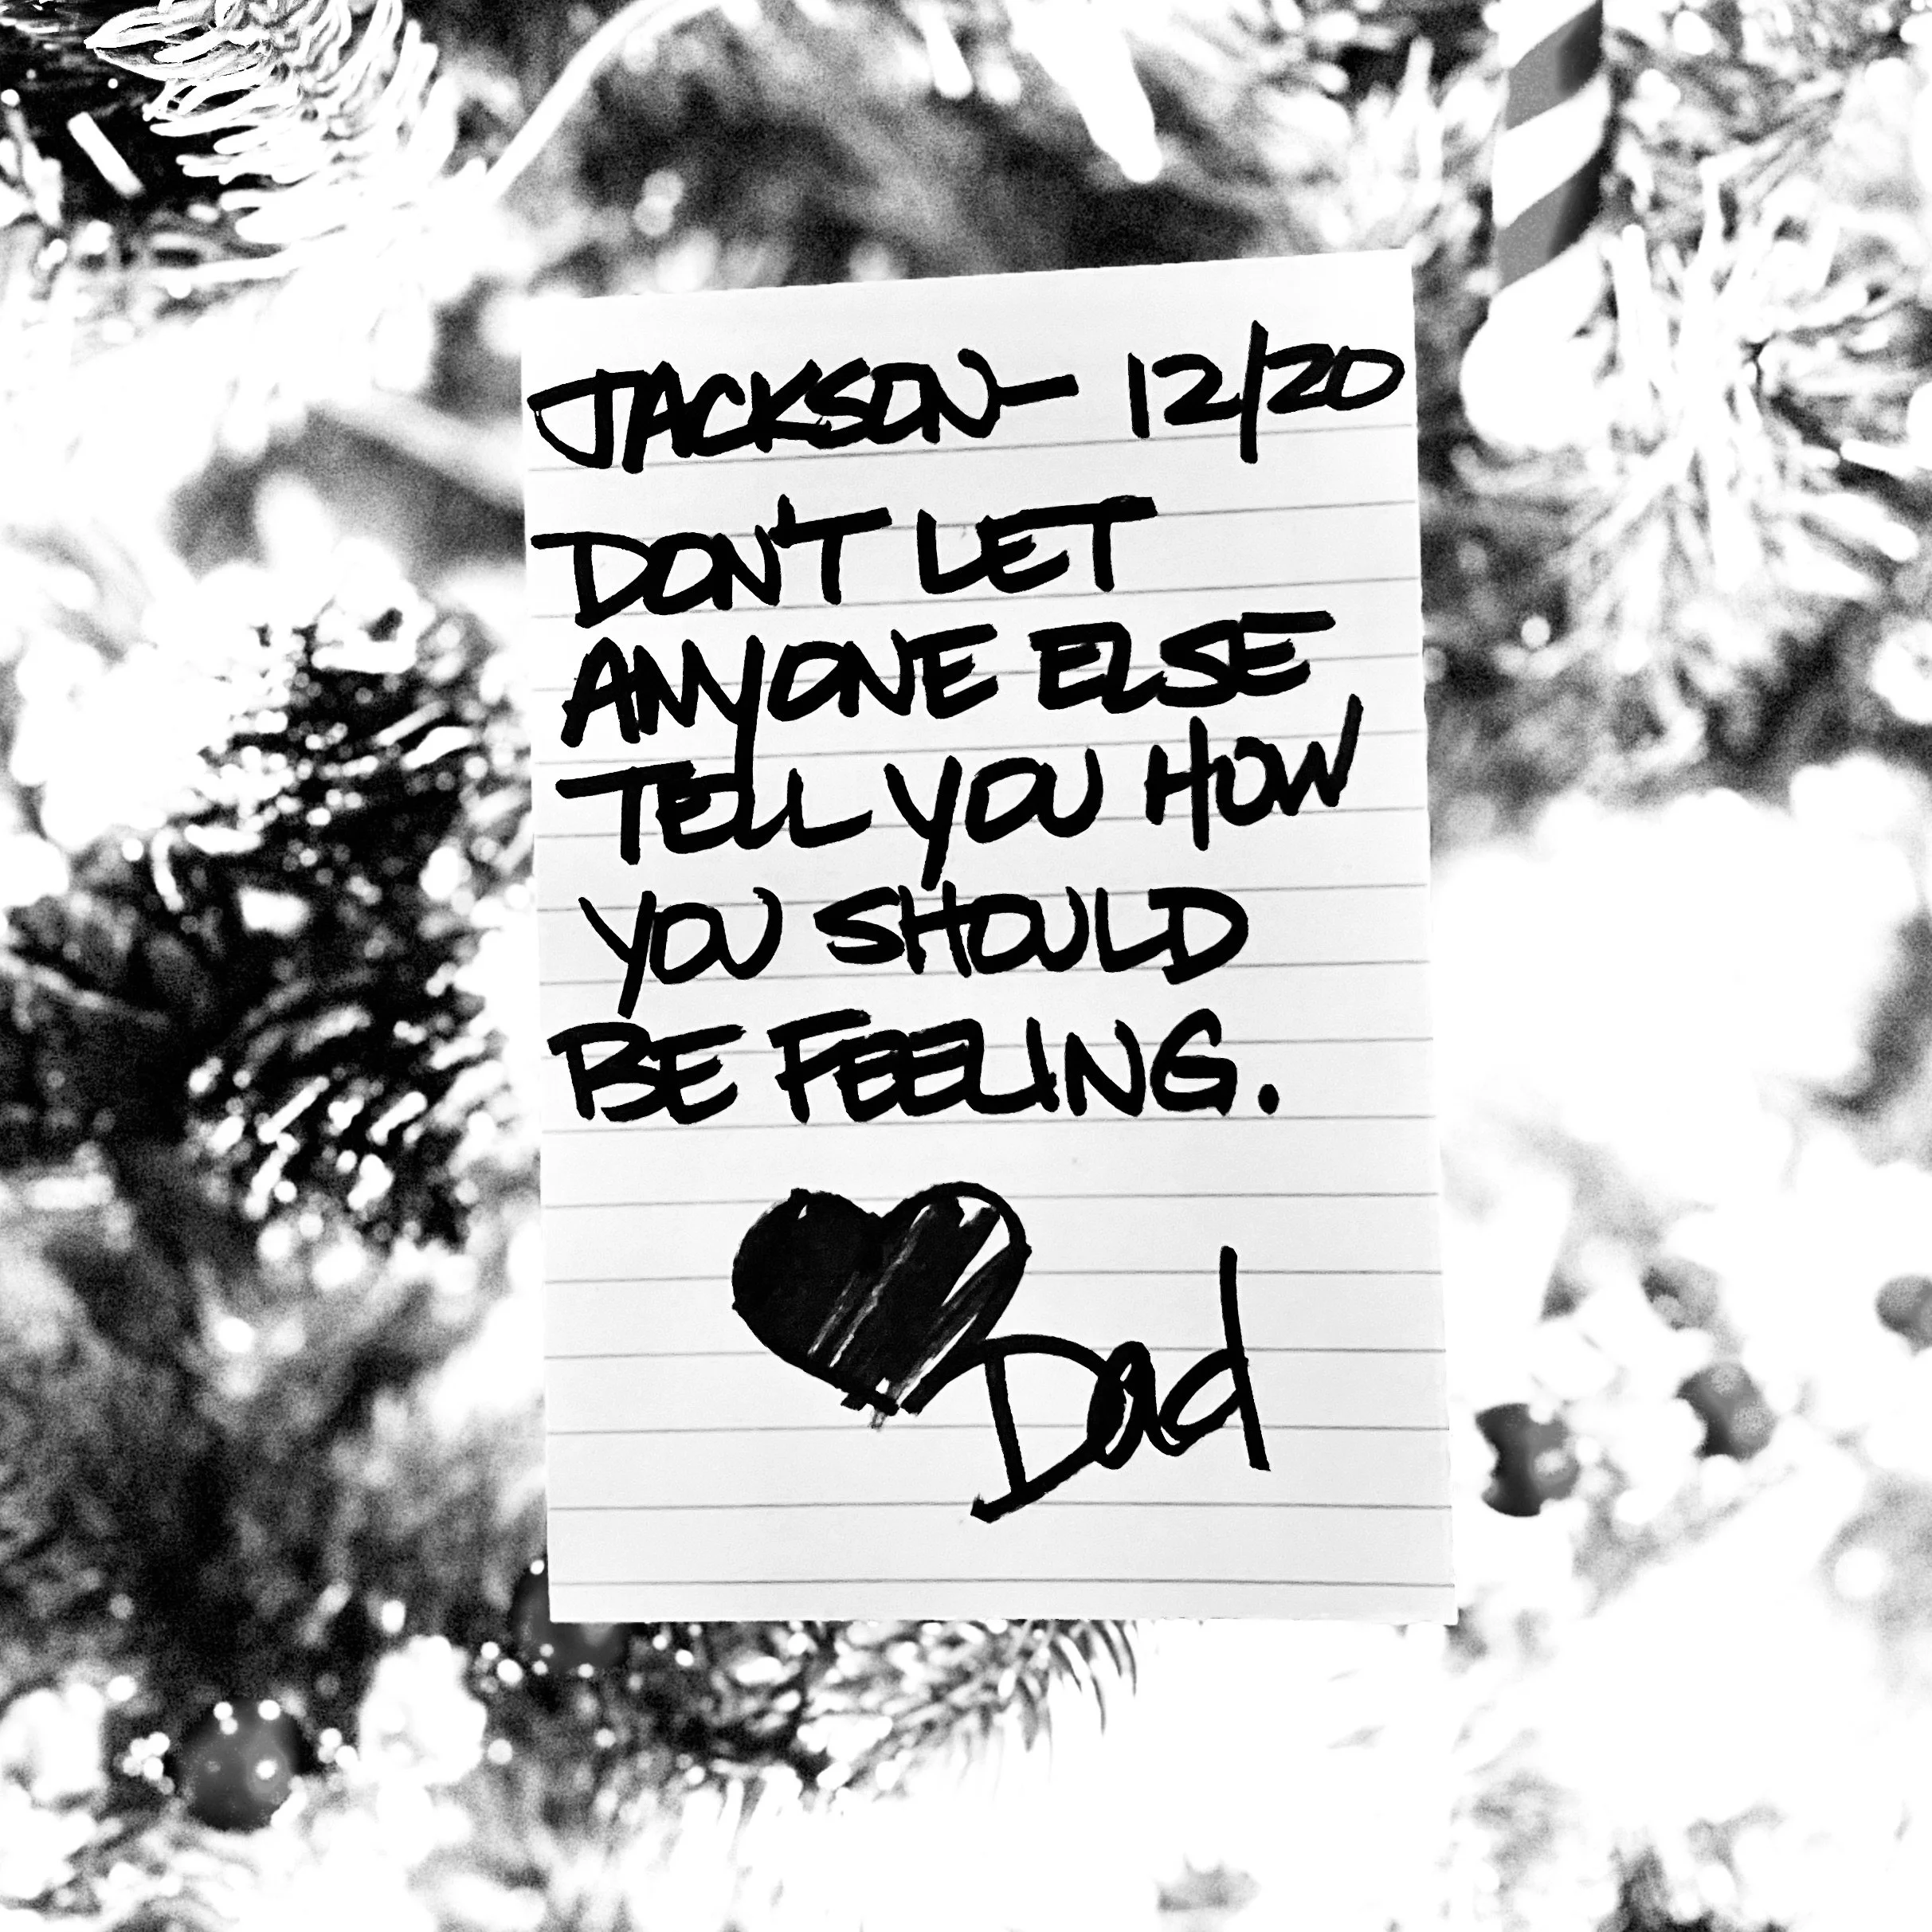 JACKSON- 12/20
DON'T LET
ANYONE ELSE
TELL YOU HOW
YOU SHOULD
BE FEELING.
Dad